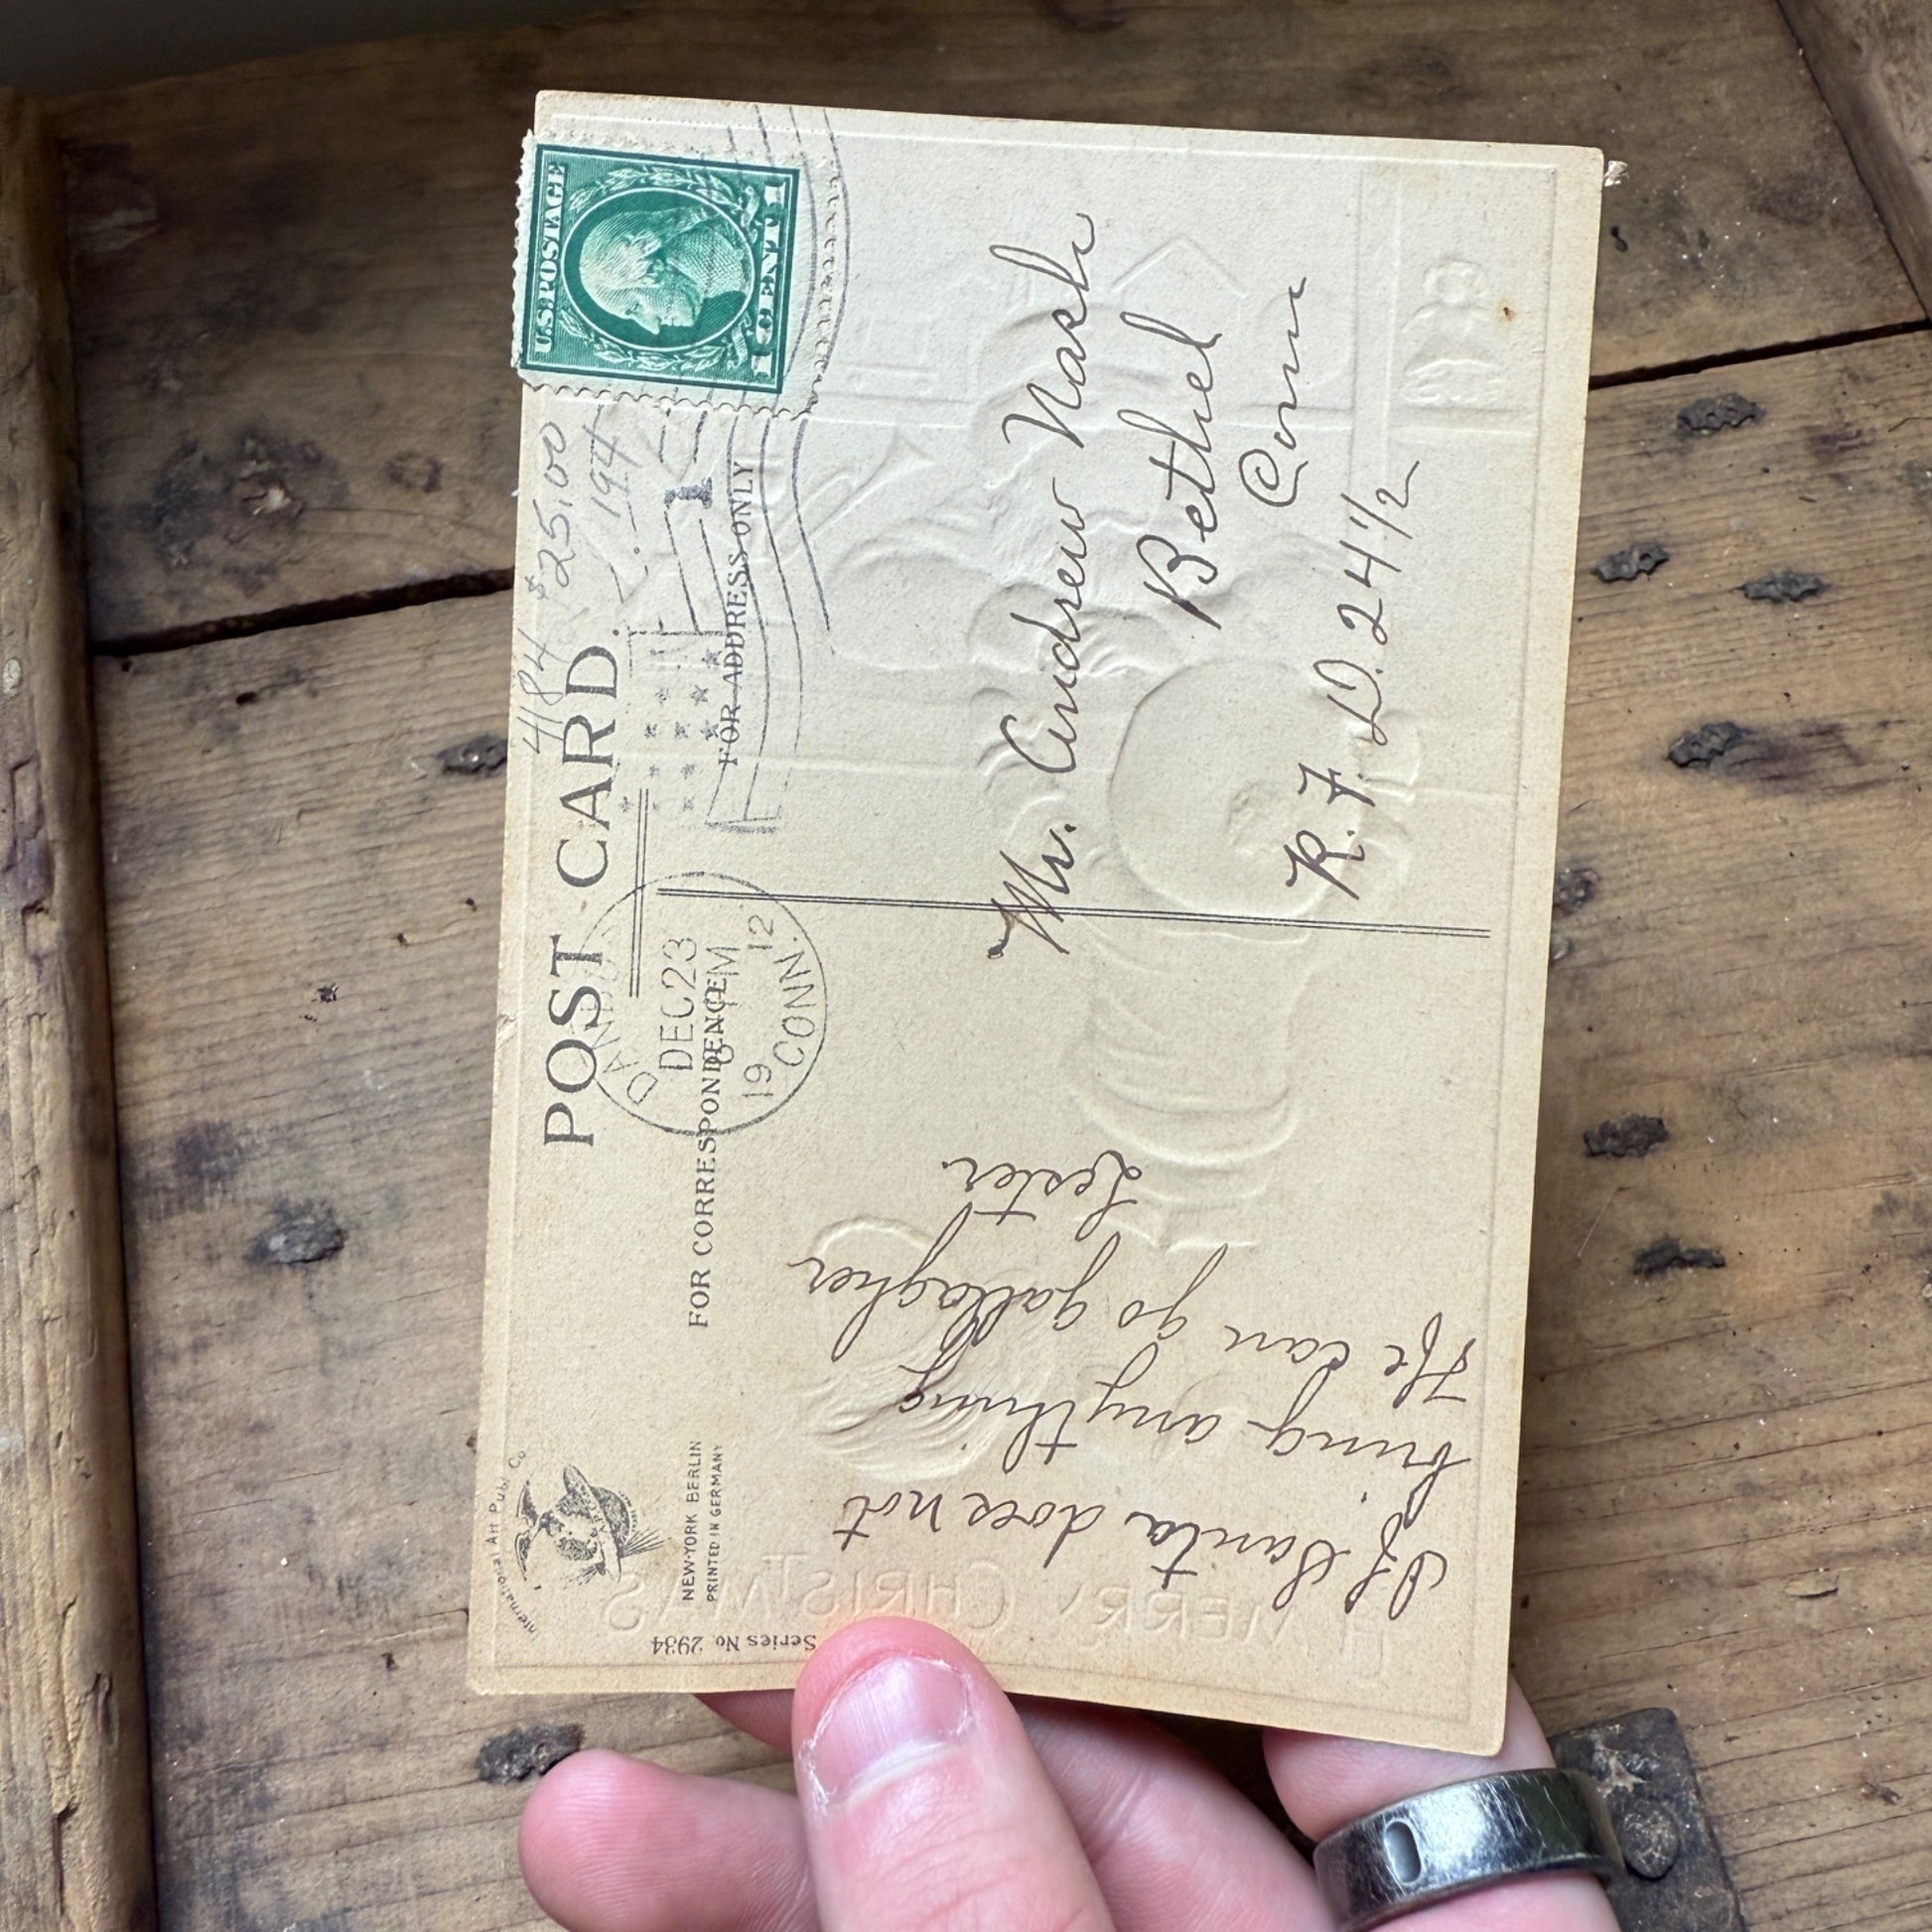 4184 $25.00
194
POST CARD.
U.S. POSTAGE
1 CENT 1
1
FOR ADDRESS ONLY
DEC 23
M
19 12
CONN.
FOR CORRESPONDENCE
International Art Pub. Co
NEW-YORK BERLIN
PRINTED IN GERMANY
Series No 2934
Mr. Andrew Nash
Bethel
Conn
R.F.D. 24 1/2
If Santa does not
bring anything
He can go gallagher
Lester
MERRY CHRISTMAS